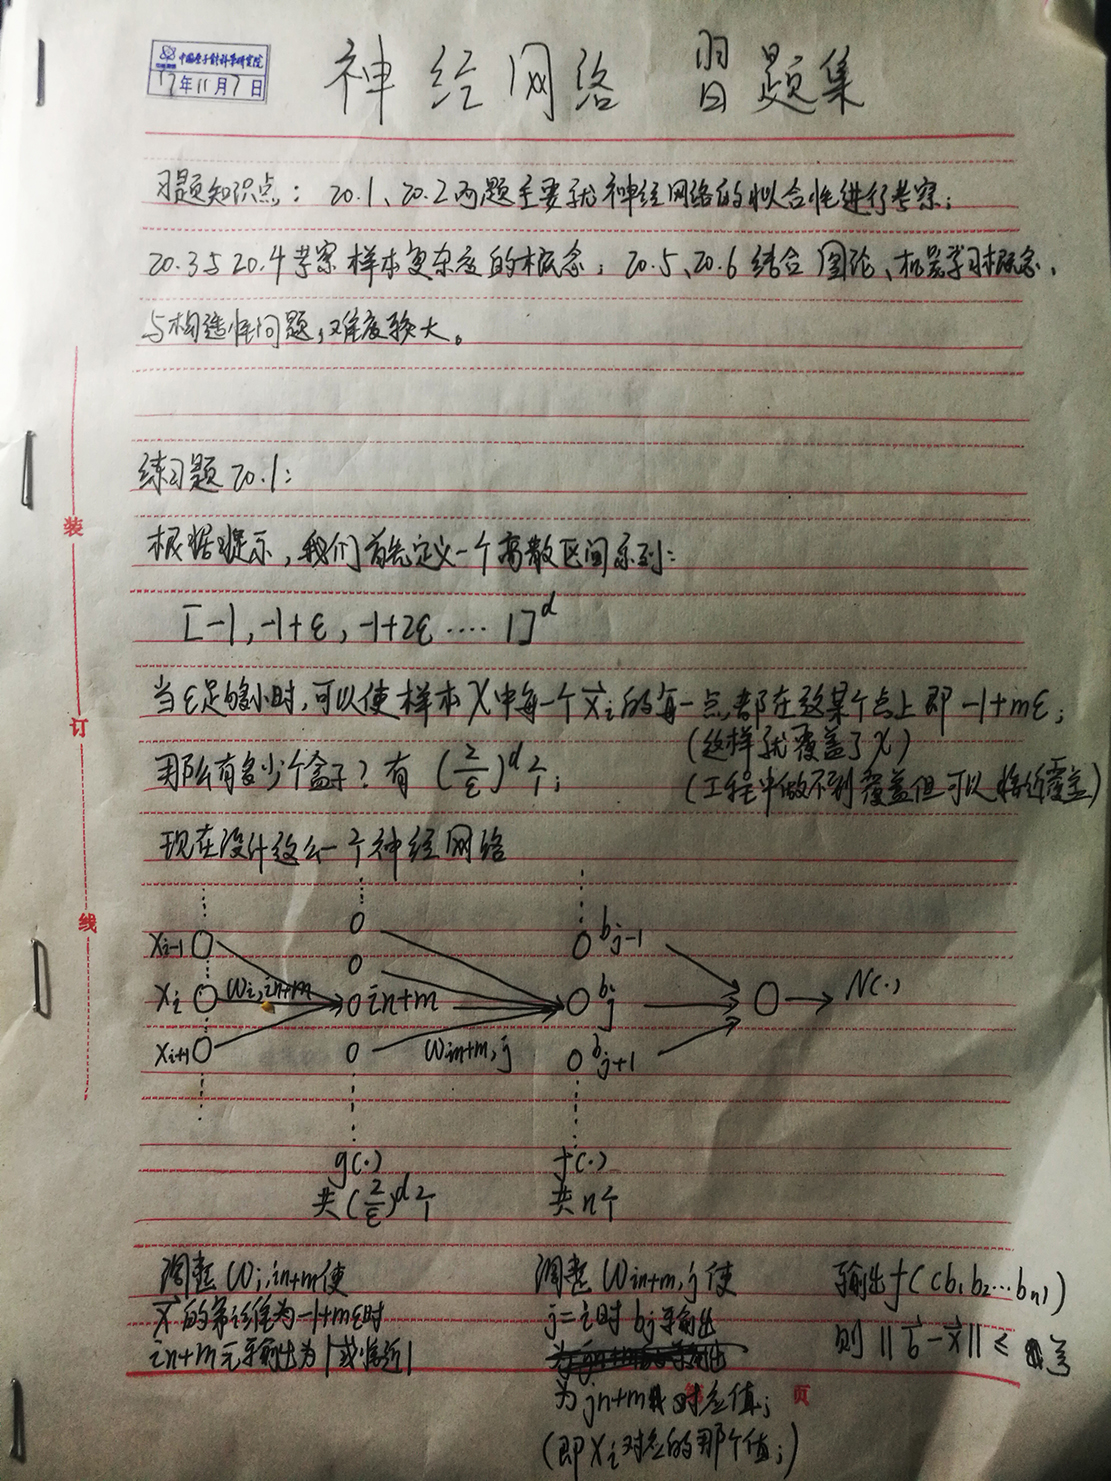 中国电子科学研究院
17年11月7日
神经网络 習题集
习题知识点：20.1、20.2两题主要就神经网络的拟合性进行考察；
20.3与20.4考察样本复杂度的概念；20.5、20.6结合图论、机器学习概念、
与构造性问题，难度较大。
练习题20.1：
根据提示，我们首先定义一个离散区间系列：
[-1, -1+ε, -1+2ε .... 1]^d
当ε足够小时，可以使样本X中每一个x⃗i的每一点都在这某个点上即-1+mε；
(这样就覆盖了X)
那么有多少个盒子？有(2/ε)^d个；
(工程中做不到覆盖但可以临近覆盖)
现在设计这么一个神经网络
xi-1
xi
xi+1
ωi,in+m
in+m
ωin+m,j
bj-1
bj
j
bj+1
N(·)
g(·)
共(2/ε)^d个
f(·)
共n个
调整ωi,in+m使
x⃗的第i维为-1+mε时
in+m元导输出为1或临近1
调整ωin+m,j使
j=i时bj导输出
为jn+m对应值；
(即xi对应的那个值；)
输出f(cb1 b2…bn1)
则||b⃗-x⃗||≤
装
订
线
页